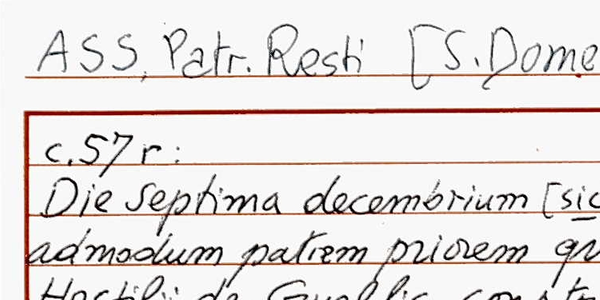 ASS, Patr. Resti [S. Dome
c. 57 r:
Die septima decembrium [sic
admodum patrem priorem qu